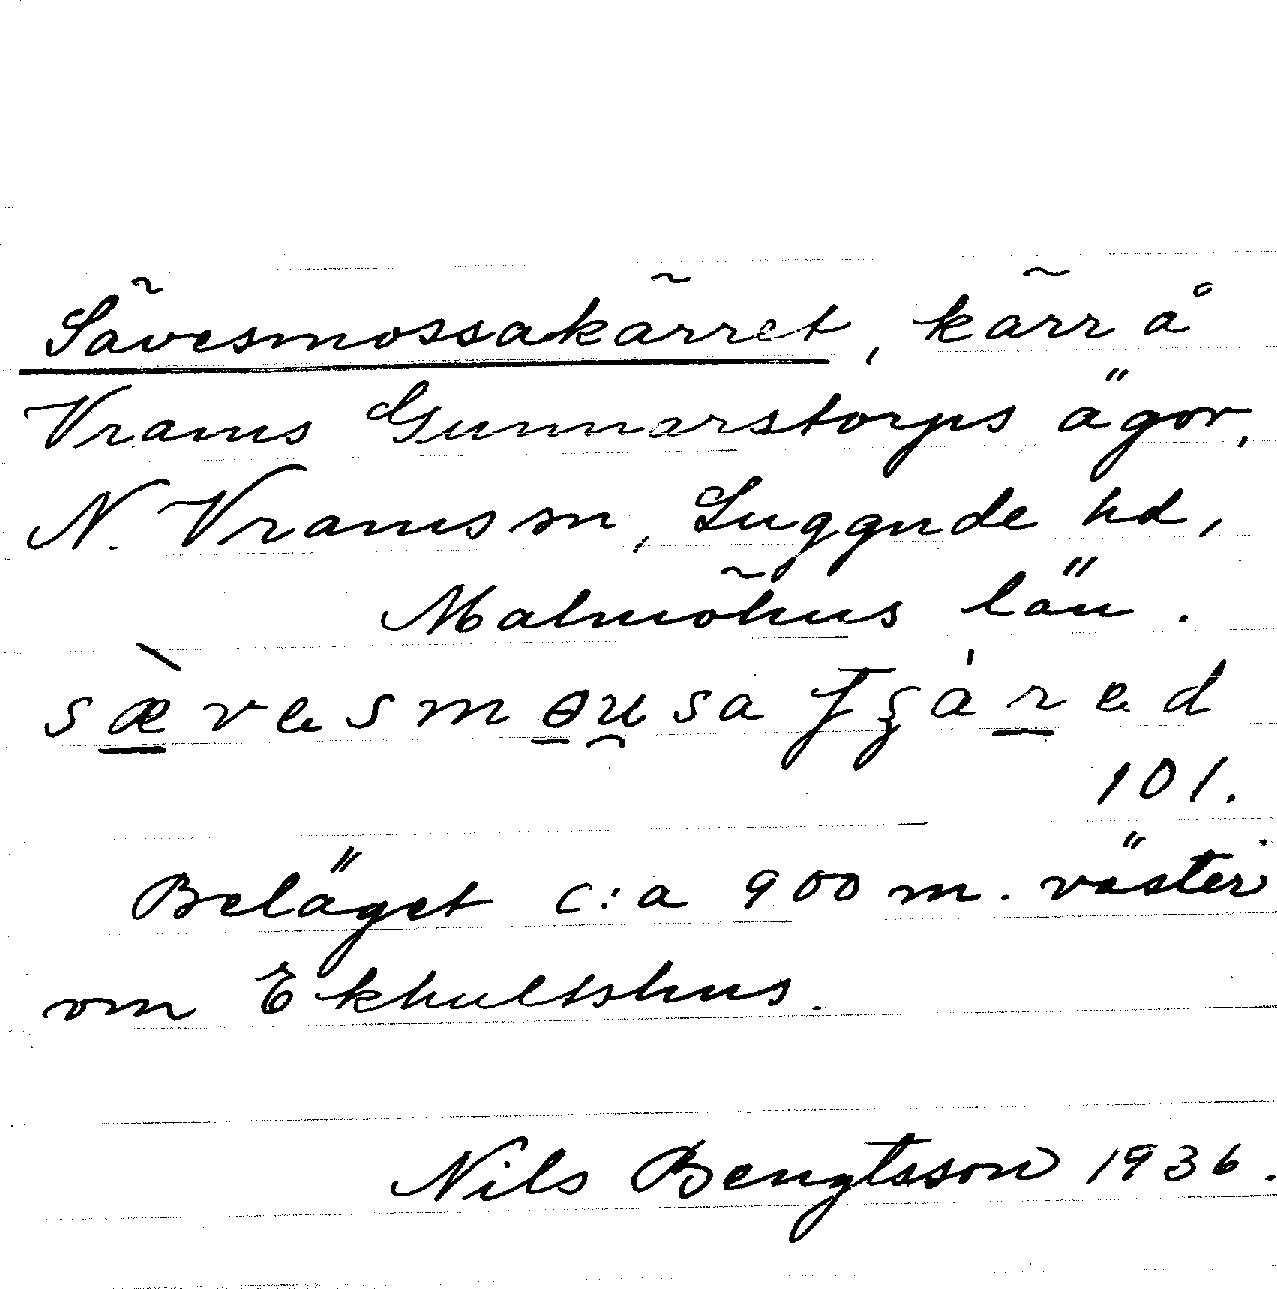 Sävesmossakärret, kärr å
Vrams Gunnarstorps ägor,
N. Vrams sn, Luggude hd,
Malmöhus län.
sæ̀vesmɵu̯sa tʂár̠ed
101.
Beläget c:a 900 m. väster
om Ekhultshus.
Nils Bengtsson 1936.